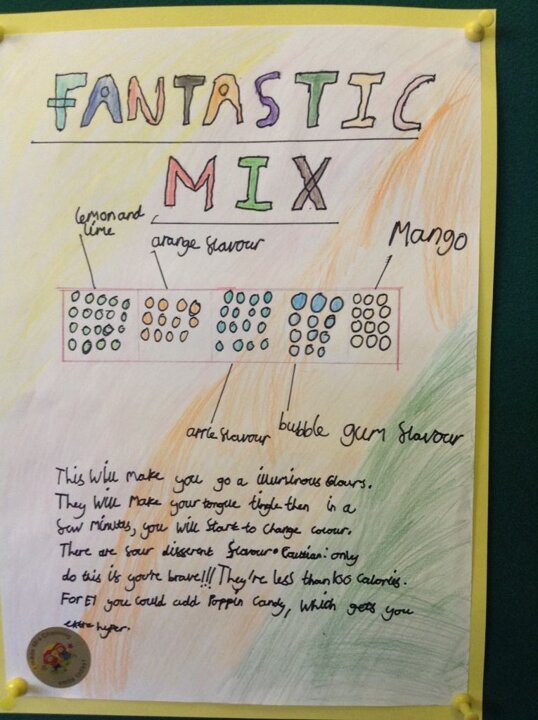 FANTASTIC
MIX
lemon and
lime
orange flavour
Mango
apple flavour
bubble gum flavour
This will make you go a illuminous Colours.
They will make your tongue tingle then in a
few minutes, you will start to change colour.
There are four different flavours. Caution: only
do this if you're brave!!! They're less than 100 Calories.
For £1 you could add Poppin Candy, which gets you
extra hyper.